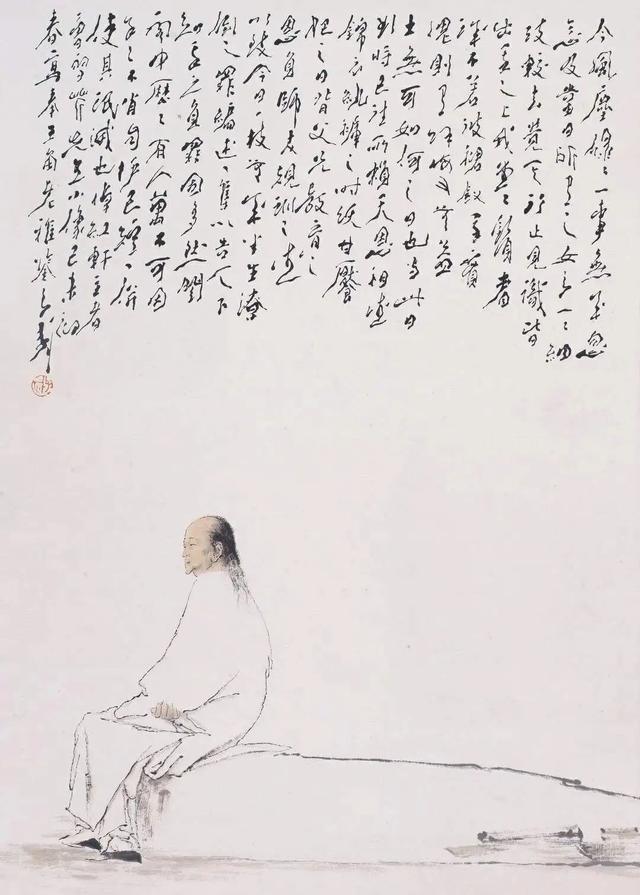 今風塵碌碌一事無成忽
念及當日所有之女子一一細
攷較去覺其行止見識皆
出我之上我堂堂鬚眉
誠不若彼裙釵哉實
愧則有餘悔又無益
大無可如何之日也當此日
已往所賴天恩祖德
錦衣紈褲之時飫甘饜
肥之日背父兄教育之
恩負師友規訓之德
以致今日一技無成半生潦
倒之罪編述一集以告天下
知我之負罪固多然閨
閣中歷歷有人萬不可因
我之不肖自護己短一併
使其泯滅也悼紅軒主者
曹雪芹先生小像己未初
春寫奉老雅鑒